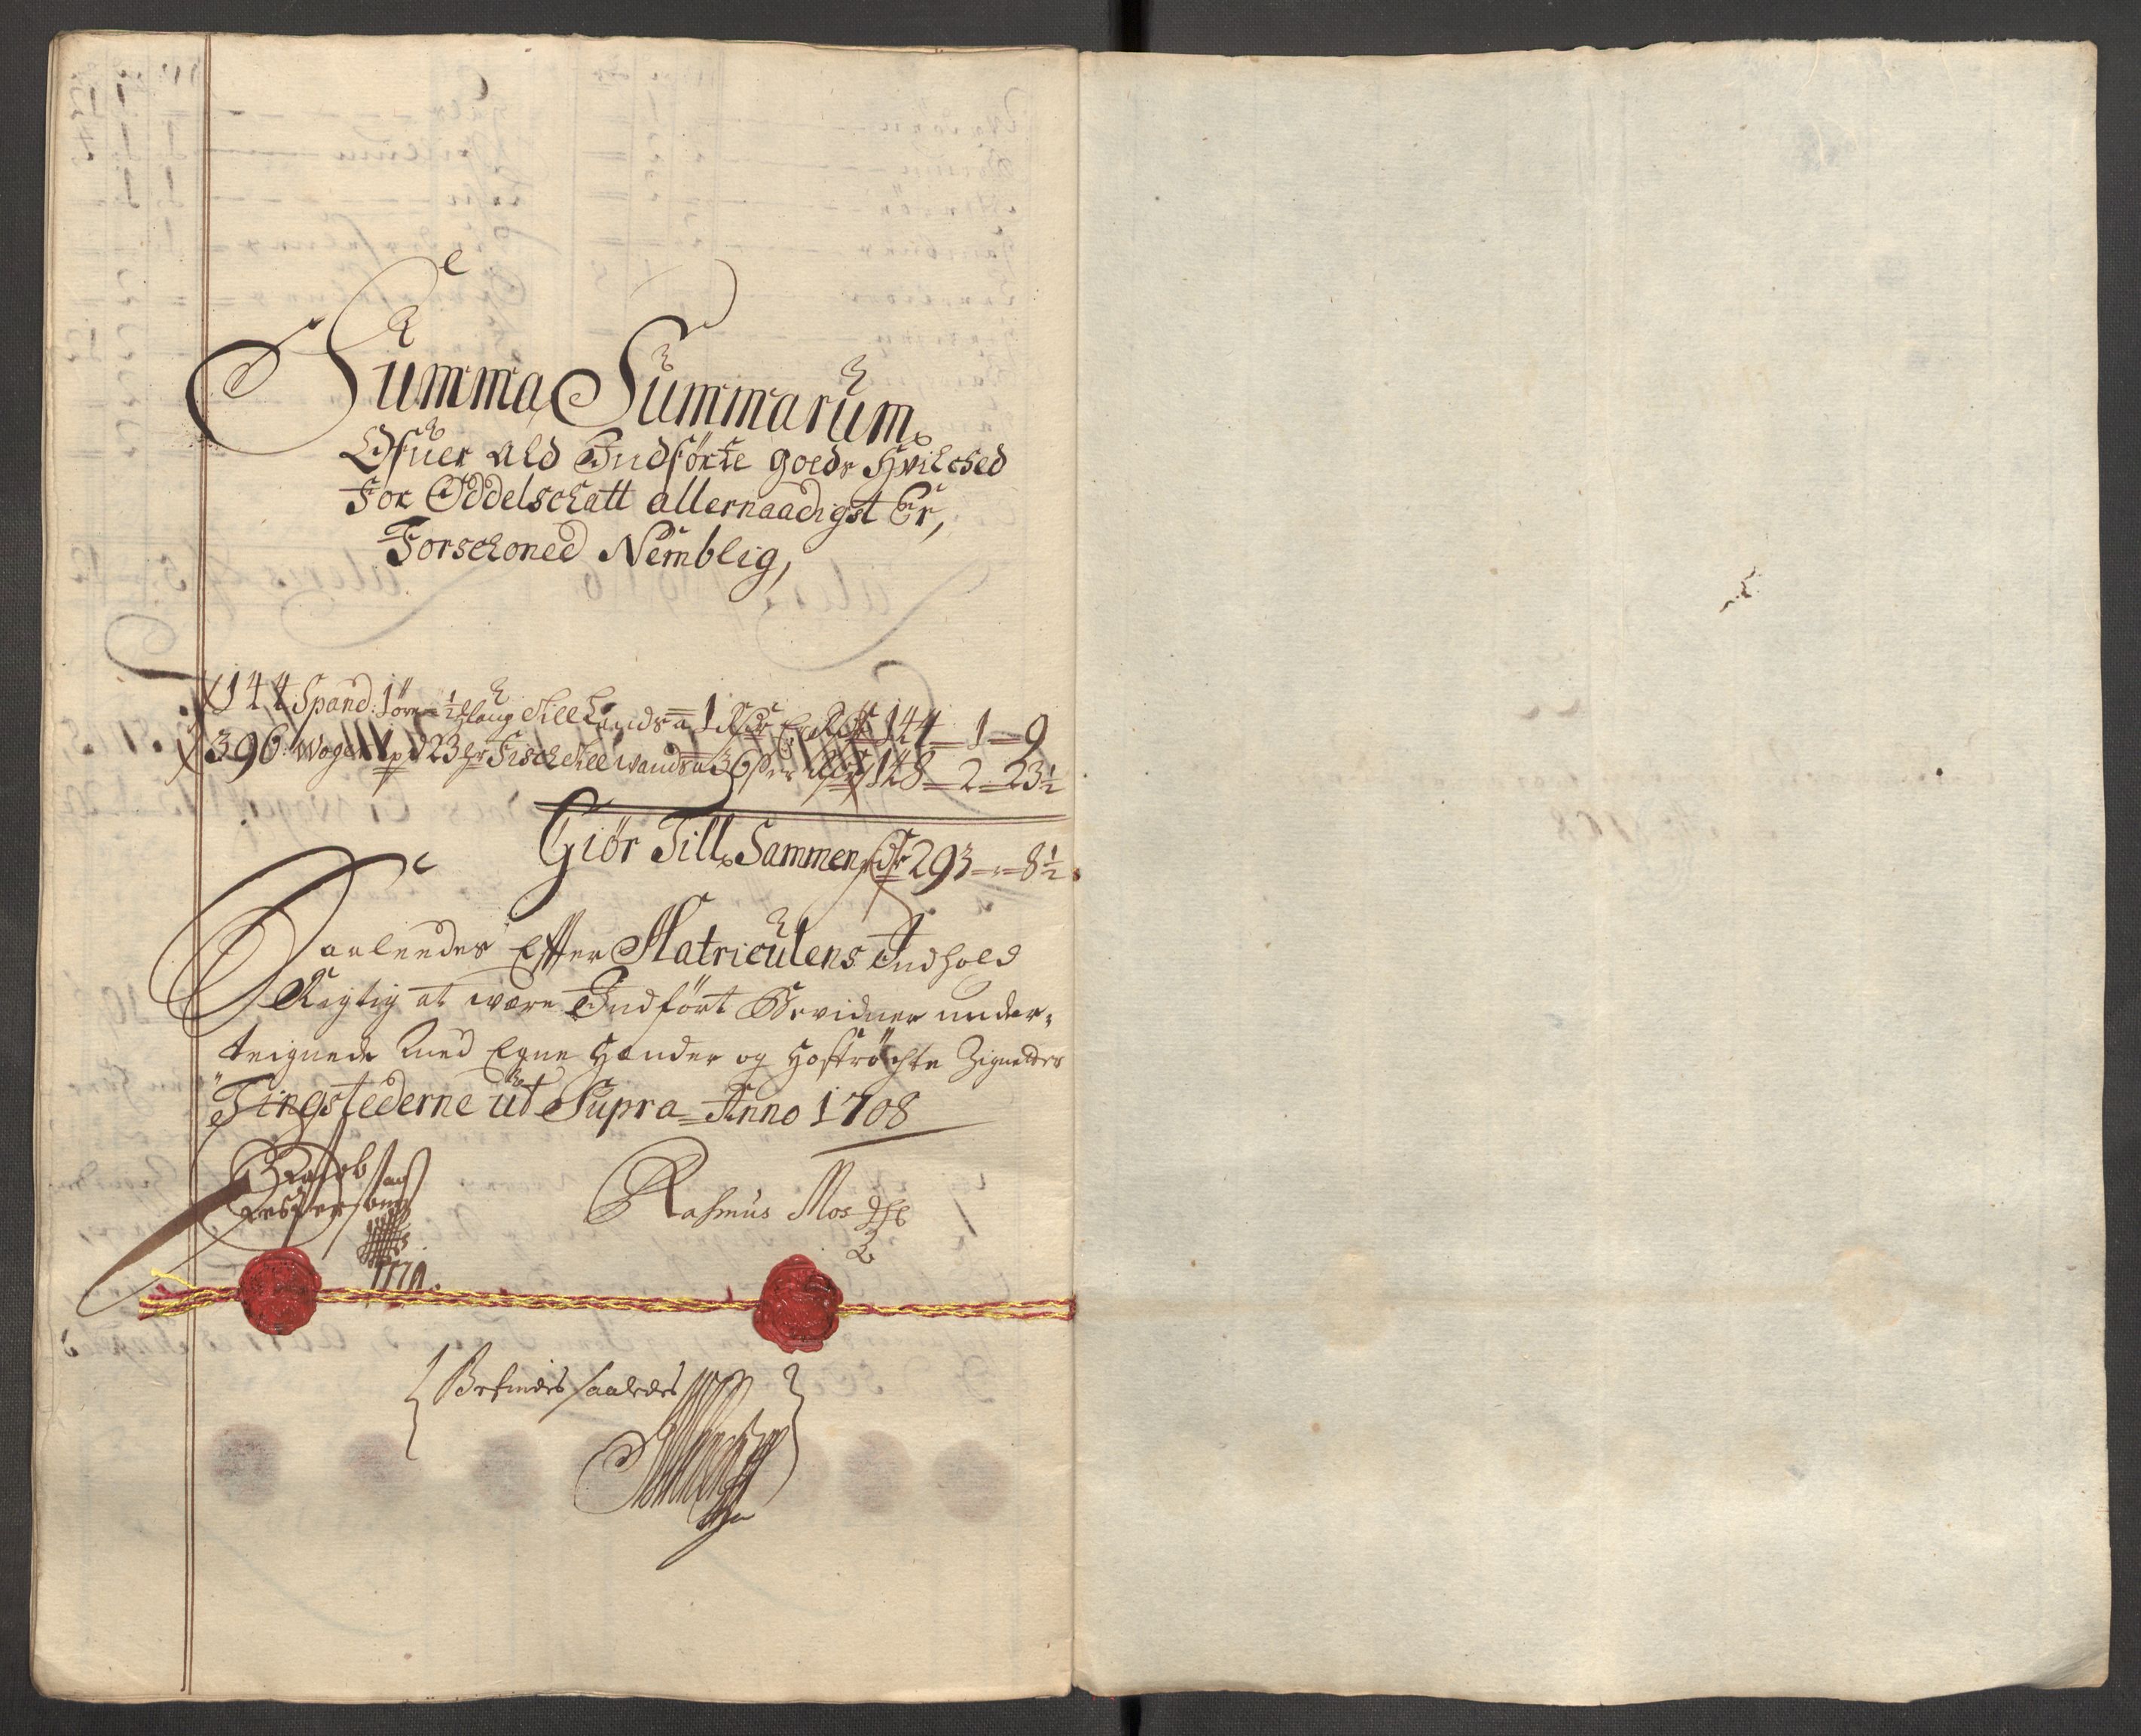 Summa Summarum
Ofuer ald Indförte goeds Hvilched
For Oddelschatt allernaadigst Er,
Forschoned Nemblig,
144 Spand 1 öre ½ Till Lands a 1 144 - 1 - 9
396 Woger 1 pd 23 Fisch Till Wands a 36 148 - 2 - 23½
Giör Till Sammen 293 - „ - 8½
Saaleedes Effter Matriculens Indhold
Rigtig at være Indfört Bevidner under-
teignede med Egne Hænder og Hoströchte Zigneter
Tingstederne ut Supra Anno 1708
Rasmus Mos
Befindes saaledes